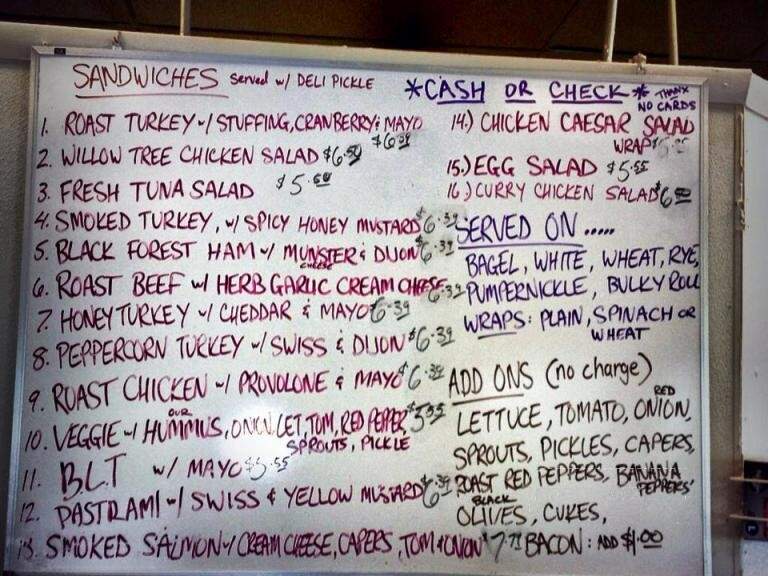 SANDWICHES served w/ DELI PICKLE
1. ROAST TURKEY w/ STUFFING, CRANBERRY & MAYO
$6.39
2. WILLOW TREE CHICKEN SALAD $6.50
3. FRESH TUNA SALAD $5.50
4. SMOKED TURKEY, w/ SPICY HONEY MUSTARD $6.39
5. BLACK FOREST HAM w/ MUNSTER & DIJON $6.39
CHEESE
6. ROAST BEEF w/ HERB GARLIC CREAM CHEESE 6.39
7. HONEY TURKEY w/ CHEDDAR & MAYO 6.39
8. PEPPERCORN TURKEY w/ SWISS & DIJON $6.39
9. ROAST CHICKEN w/ PROVOLONE & MAYO $6.39
OUR
10. VEGGIE w/ HUMMUS, ONION, LET, TOM, RED PEPPER, $5.55
SPROUTS, PICKLE
11. B.L.T w/ MAYO $5.55
12. PASTRAMI w/ SWISS & YELLOW MUSTARD $6.39
13. SMOKED SALMON w/ CREAM CHEESE, CAPERS, TOM & ONION $7.79
*CASH OR CHECK* THANX
NO CARDS
14.) CHICKEN CAESAR SALAD
WRAP
15.) EGG SALAD $5.55
16.) CURRY CHICKEN SALAD $6.50
SERVED ON .....
BAGEL, WHITE, WHEAT, RYE,
PUMPERNICKLE, BULKY ROLL
WRAPS: PLAIN, SPINACH OR
WHEAT
ADD ONS (no charge)
RED
LETTUCE, TOMATO, ONION,
SPROUTS, PICKLES, CAPERS,
ROAST RED PEPPERS, BANANA
PEPPERS
BLACK
OLIVES, CUKES,
BACON: ADD $1.00